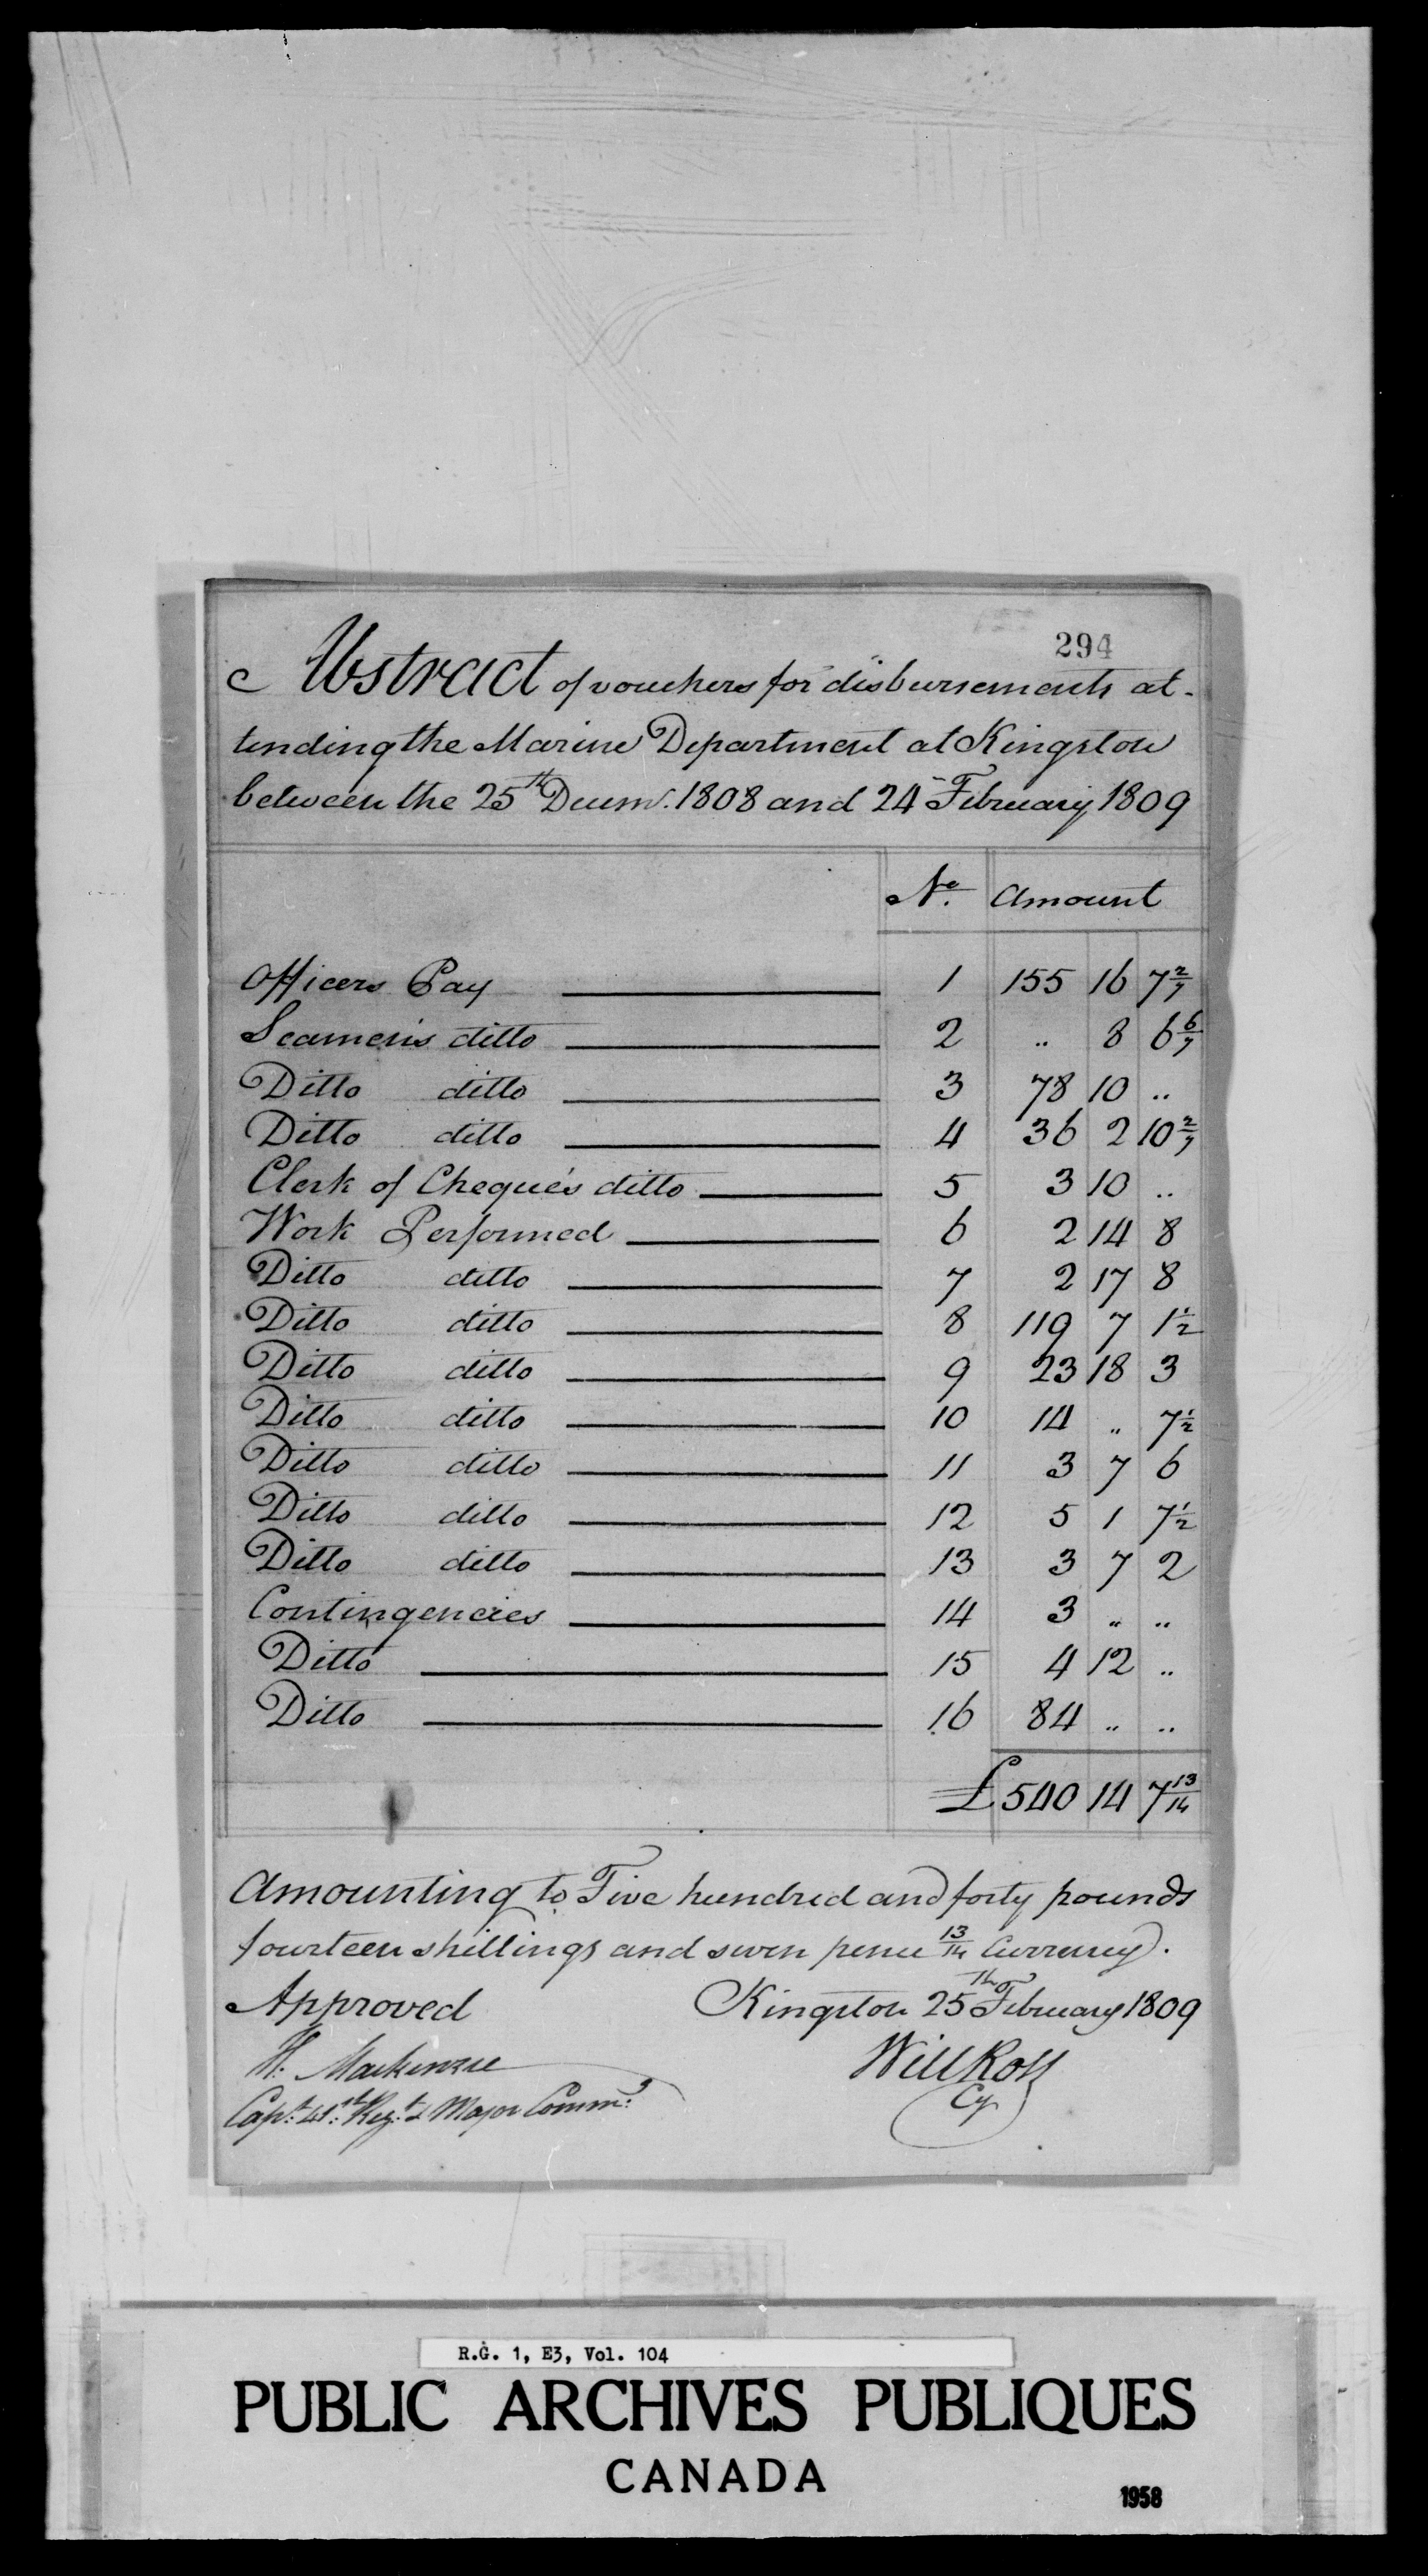 294
Abstract of vouchers for disbursements at-
tending the Marine Department at Kingston
between the 25th Decemr. 1808 and 24 February 1809
No. Amount
Officers Pay 1 155 16 7 2/7
Seamen's ditto 2 .. 8 6 6/7
Ditto ditto 3 78 10 ..
Ditto ditto 4 36 2 10 2/7
Clerk of Cheque's ditto 5 3 10 ..
Work Performed 6 2 14 8
Ditto ditto 7 2 17 8
Ditto ditto 8 119 7 1 1/2
Ditto ditto 9 23 18 3
Ditto ditto 10 14 .. 7 1/2
Ditto ditto 11 3 7 6
Ditto ditto 12 5 1 7 1/2
Ditto ditto 13 3 7 2
Contingencies 14 3 .. ..
Ditto 15 4 12 ..
Ditto 16 84 .. ..
£ 540 14 7 13/14
Amounting to Five hundred and forty pounds
fourteen shillings and seven pence 13/14 Currency.
Approved Kingston 25th February 1809
H. Mackenzie Will Ross
Capt. 41st. Regt. & Major Comm. Cy
R.G. 1, E3, Vol. 104
PUBLIC ARCHIVES PUBLIQUES
CANADA
1958